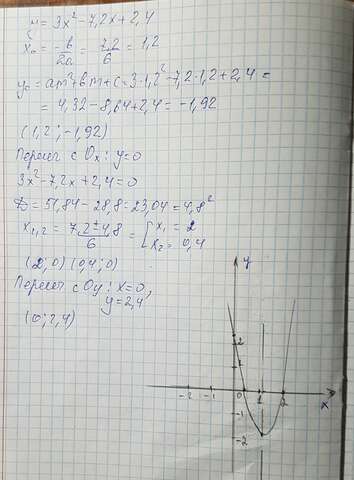 y = 3x² - 7,2x + 2,4
x₀ = -b/2a = 7,2/6 = 1,2
y₀ = am² + bm + c = 3·1,2² - 7,2·1,2 + 2,4 =
= 4,32 - 8,64 + 2,4 = -1,92
(1,2; -1,92)
Пересеч с Ox: y=0
3x² - 7,2x + 2,4 = 0
D = 51,84 - 28,8 = 23,04 = 4,8²
x₁,₂ = 7,2 ± 4,8 / 6 = [x₁ = 2
x₂ = 0,4
(2; 0) (0,4; 0)
Пересеч с Oy: x=0,
y=2,4
(0; 2,4)
y
2
1
-2 -1 0 1 2 x
-1
-2